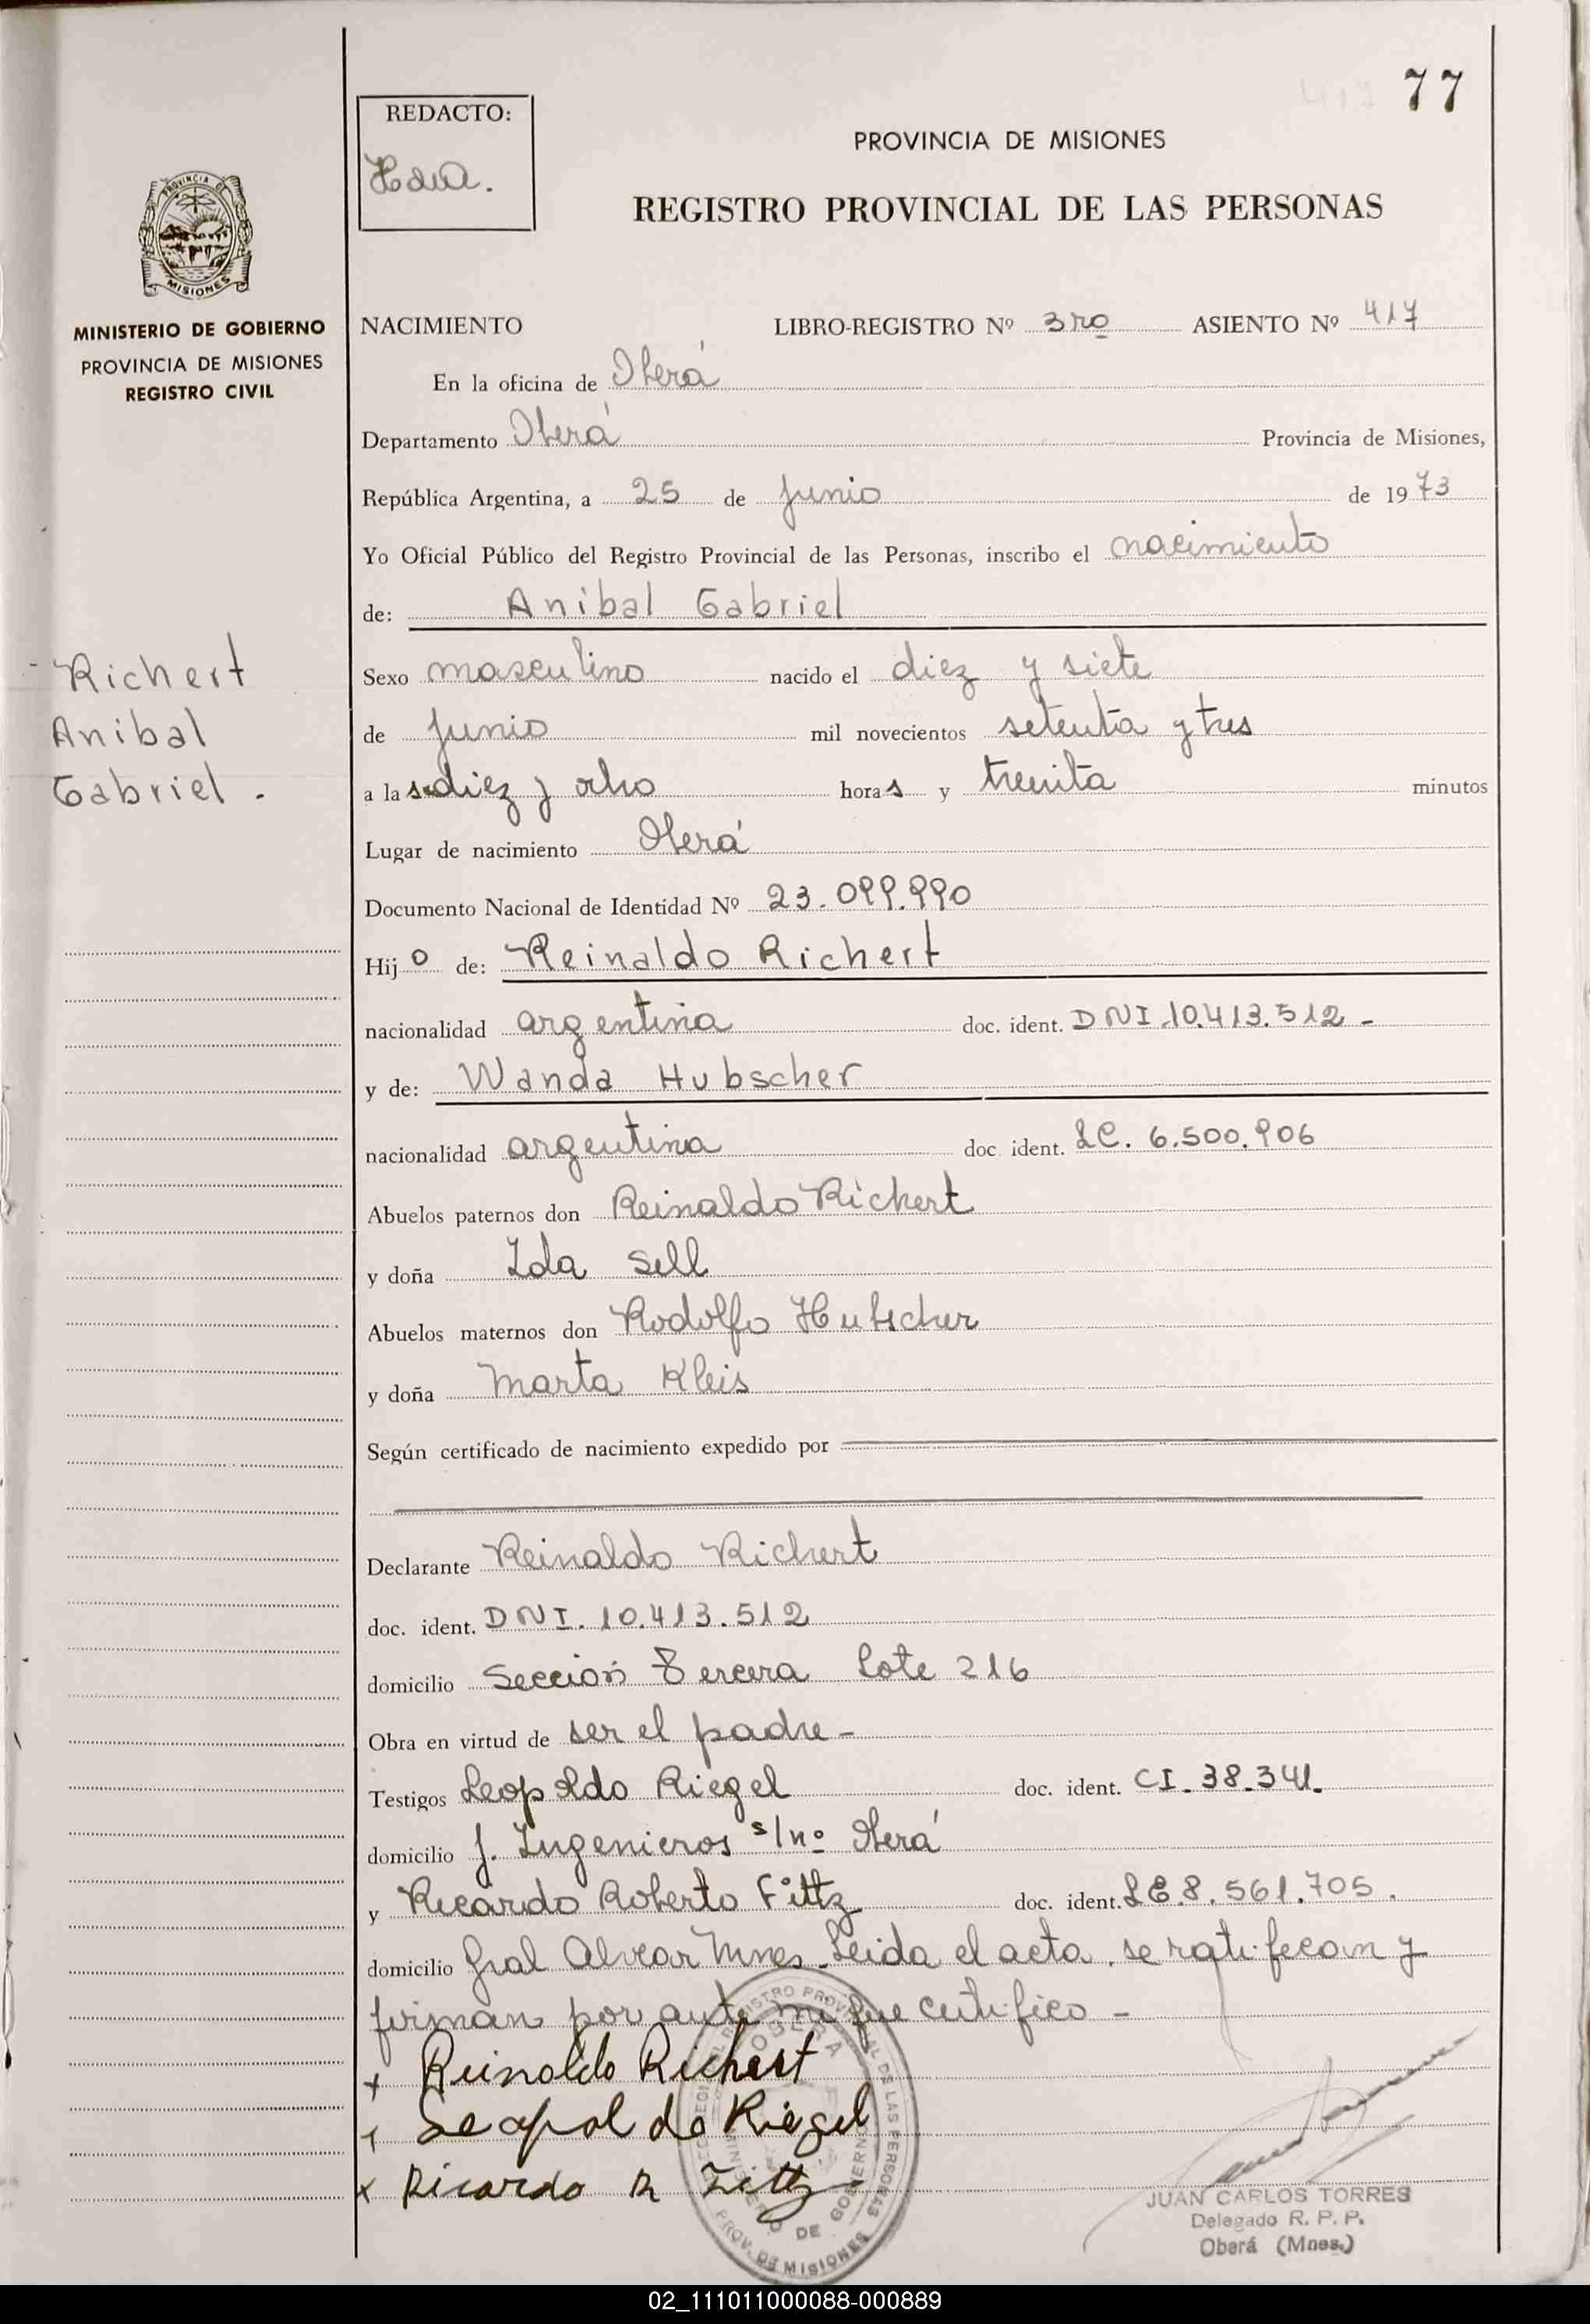 77
417
REDACTO:
PROVINCIA DE MISIONES
REGISTRO PROVINCIAL DE LAS PERSONAS
PROVINCIA DE
MISIONES
MINISTERIO DE GOBIERNO
PROVINCIA DE MISIONES
REGISTRO CIVIL
NACIMIENTO LIBRO-REGISTRO Nº 3ro ASIENTO Nº 417
En la oficina de Oberá
Departamento Oberá Provincia de Misiones,
República Argentina, a 25 de Junio de 1973
Yo Oficial Público del Registro Provincial de las Personas, inscribo el nacimiento
de: Anibal Gabriel
Richert
Anibal
Gabriel.
Sexo masculino nacido el diez y siete
de Junio mil novecientos setenta y tres
a las diez y ocho horas y treinta minutos
Lugar de nacimiento Oberá
Documento Nacional de Identidad Nº 23.099.990
Hijo de: Reinaldo Richert
nacionalidad argentina doc. ident. DNI.10.413.512-
y de: Wanda Hubscher
nacionalidad argentina doc ident. LC. 6.500.906
Abuelos paternos don Reinaldo Richert
y doña Ida Sell
Abuelos maternos don Rodolfo Hubscher
y doña Marta Kleis
Según certificado de nacimiento expedido por
Declarante Reinaldo Richert
doc. ident. DNI. 10.413.512
domicilio Sección Tercera Lote 216
Obra en virtud de ser el padre-
Testigos Leopoldo Riegel doc. ident. CI. 38.341.
domicilio J. Ingenieros s/nº Oberá
y Ricardo Roberto Fittz doc. ident. LE 8.561.705.
domicilio Gral Alvear Mnes. Leida el acta, se ratifican y
firman por ante mi que certifico-
x Reinaldo Richert
x Leopoldo Riegel
x Ricardo R Fittz
REGISTRO PROVINCIAL DE LAS PERSONAS
OBERA
MINISTERIO DE GOBIERNO
PROV. DE MISIONES
JUAN CARLOS TORRES
Delegado R. P. P.
Oberá (Mnes.)
02_111011000088-000889